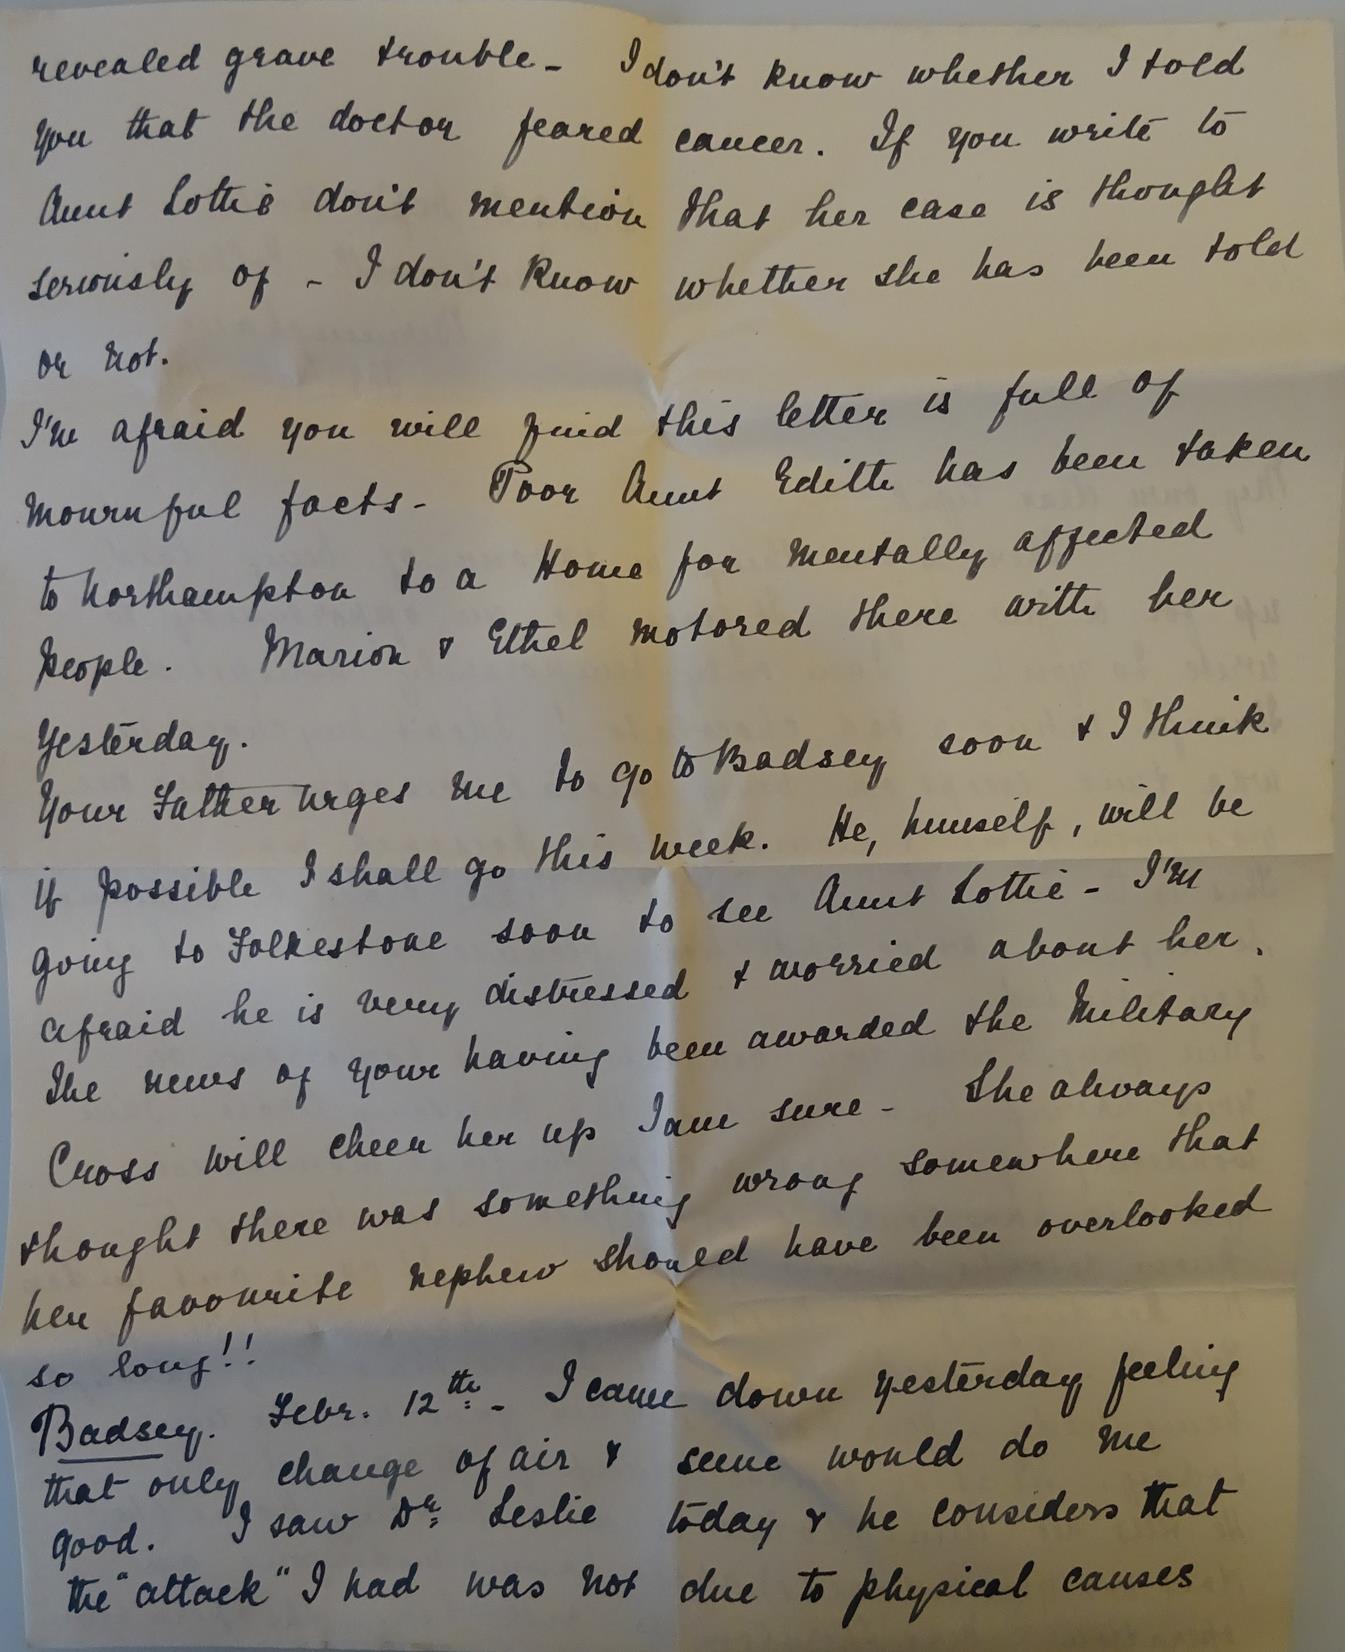 revealed grave trouble - I don't know whether I told
you that the doctor feared cancer. If you write to
Aunt Lottie don't mention that her case is thought
seriously of - I don't know whether she has been told
or not.
I'm afraid you will find this letter is full of
mournful facts - Poor Aunt Edith has been taken
to Northampton to a Home for mentally affected
people. Marion & Ethel motored there with her
yesterday.
Your Father urges me to go to Badsey soon & I think
if possible I shall go this week. He, himself, will be
going to Folkestone soon to see Aunt Lottie - I'm
afraid he is very distressed & worried about her.
The news of your having been awarded the Military
Cross will cheer her up I am sure - She always
thought there was something wrong somewhere that
her favourite nephew should have been overlooked
so long!!
Badsey. Febr. 12th - I came down yesterday feeling
that only change of air & scene would do me
good. I saw Dr Leslie today & he considers that
the "attack" I had was not due to physical causes